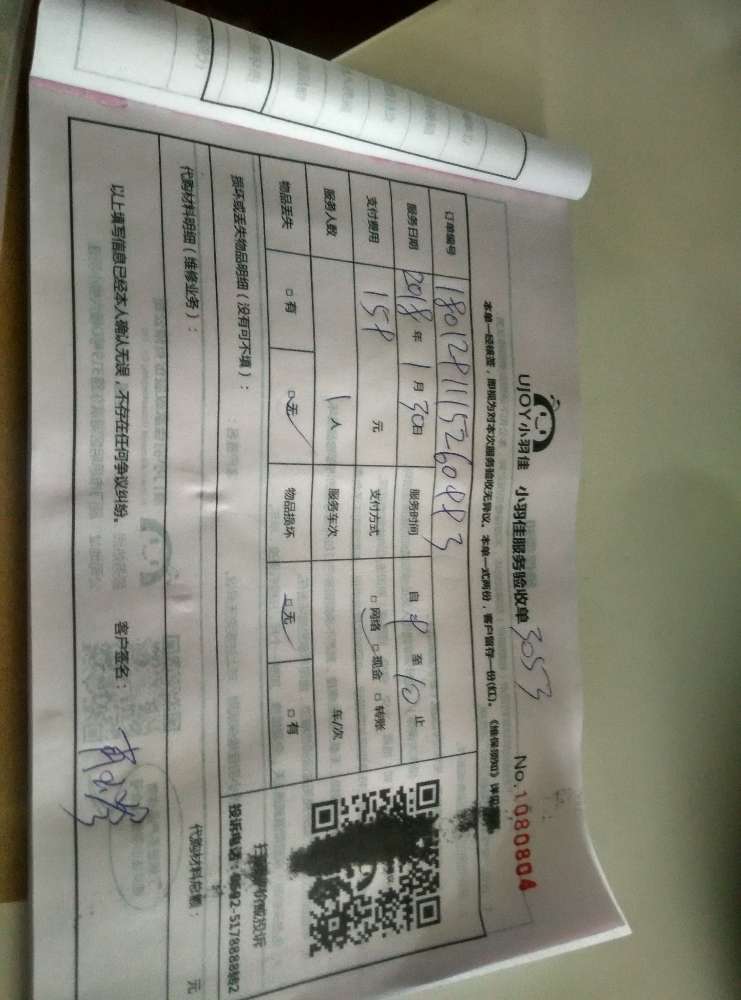 UJOY小羽佳 小羽佳服务验收单 3053 No.1080804
本单一经核签，即视为对本次服务验收无异议。本单一式两份，客户留存一份(红)。《维保须知》详见
订单编号
服务日期 2018年1月30日 服务时间 自 至10止
支付费用 158元 支付方式 □网络 □现金 □转账
服务人数 1人 服务车次 车/次
物品丢失 □有 □无 物品损坏 □无 □有
损坏或丢失物品明细（没有可不填）：
投诉电话：0592-5178888转2
代购材料明细（维修业务）： 代购材料总额： 元
以上填写信息已经本人确认无误，不存在任何争议纠纷。 客户签名：